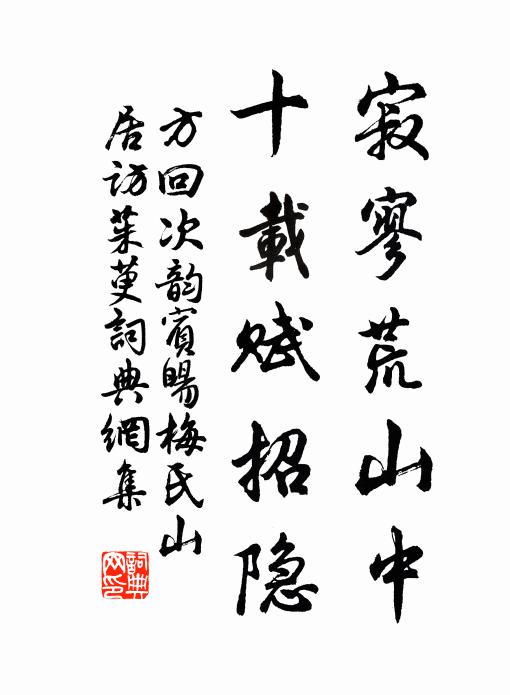 寂寥荒山中
十載赋招隐
方回次韵賓暘梅氏山
居访茱萸詞典網集
詞典